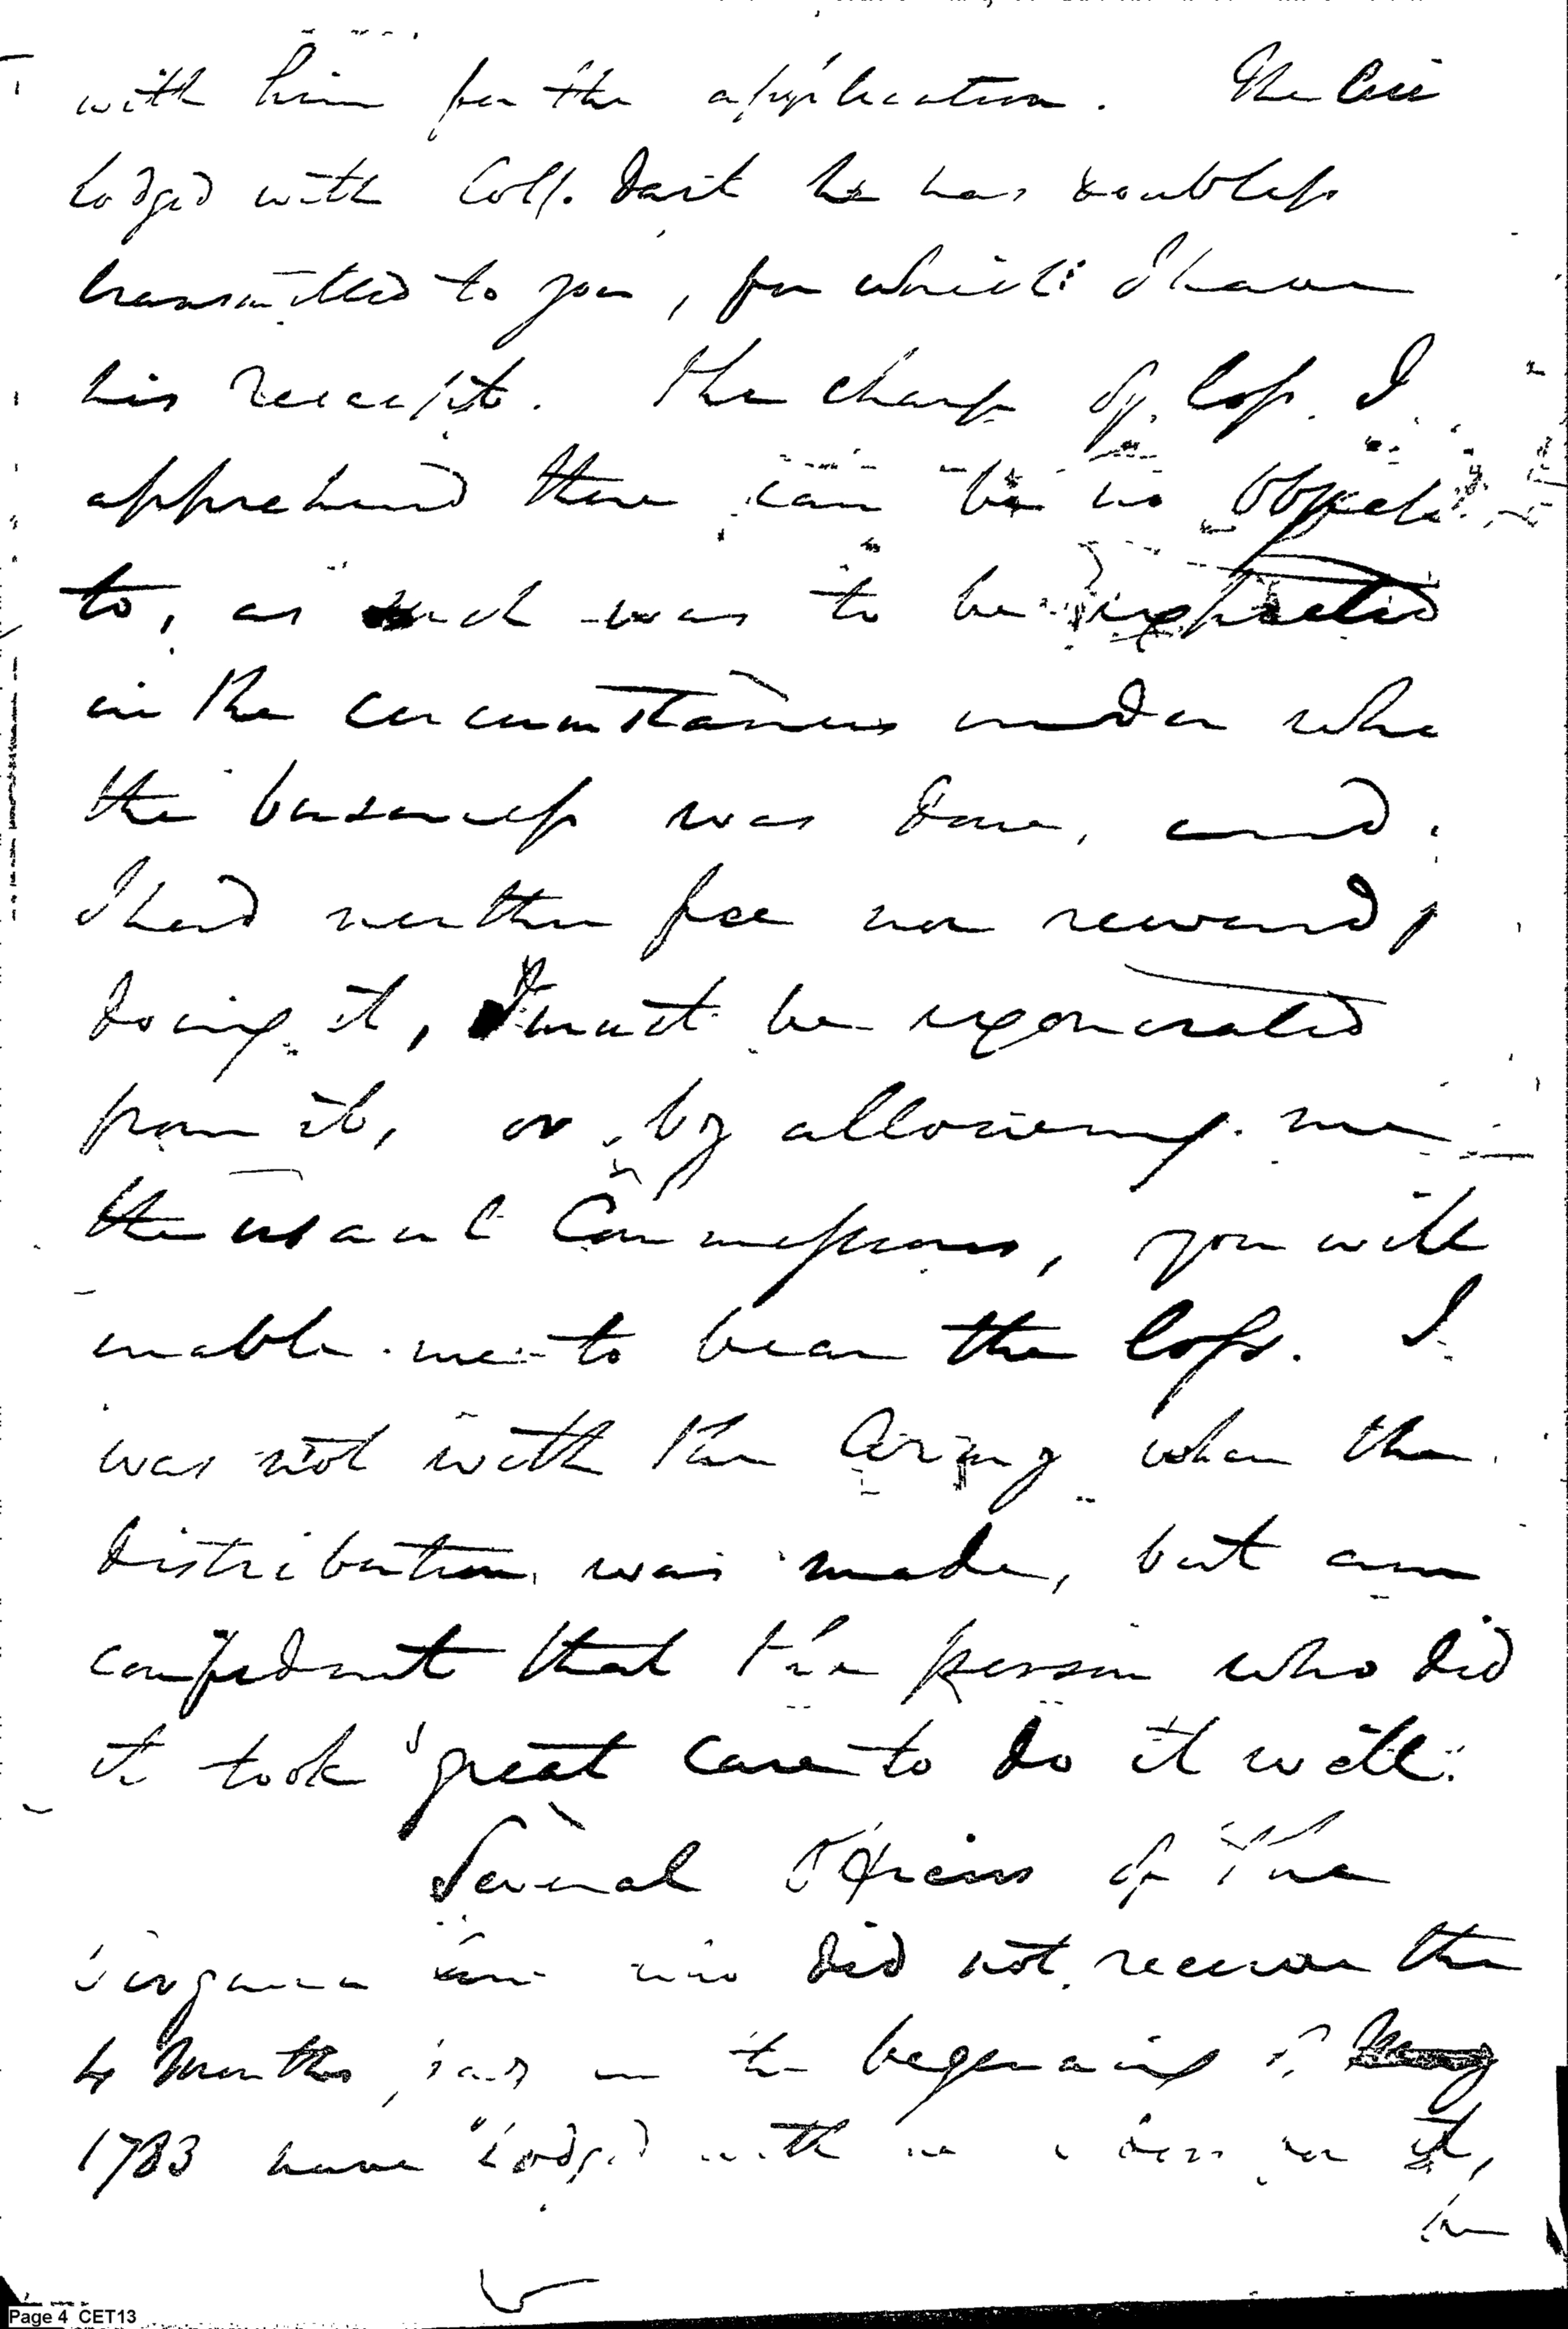 with him for the application. The
lodged with Coll. Dart he has doubless
transmitted to you, for which I have
his receipt. The charge of loss I
apprehend there can be no object
to, as such was to be expected
in the circumstances under
the business was done, and
I had neither fee nor reward
doing it, I must be exonerated
from it, or by allowing me
the usual Commissions, you will
enable me to bear the loss. I
was not with the Army when the
distribution was made, but am
confident that the person who did
it took great care to do it well.
Several Officers of the
Virginia Line who did not receive the
4 Months pay in the begenning of
1783 have lodged with me it,
Page 4 CET13